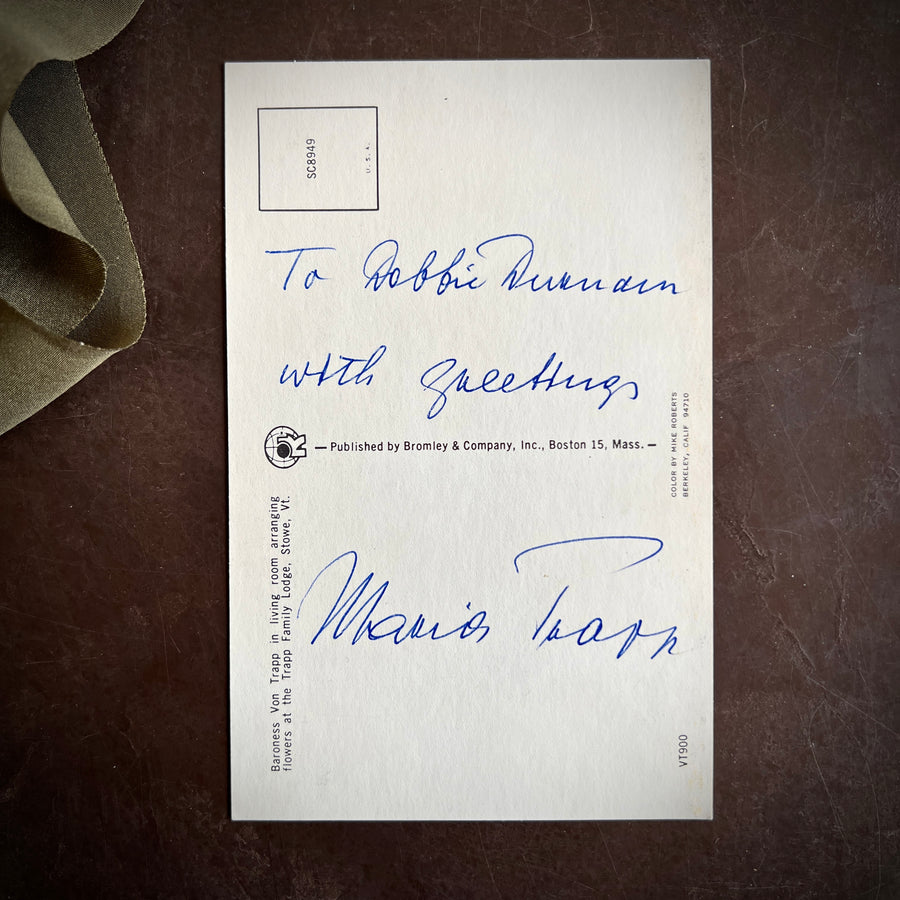 SC8949
U. S. A.
To Debbie
with greetings
Published by Bromley & Company, Inc., Boston 15, Mass.
COLOR BY MIKE ROBERTS
BERKELEY, CALIF 94710
Baroness Von Trapp in living room arranging
flowers at the Trapp Family Lodge, Stowe, Vt.
Maria Trapp
VT900